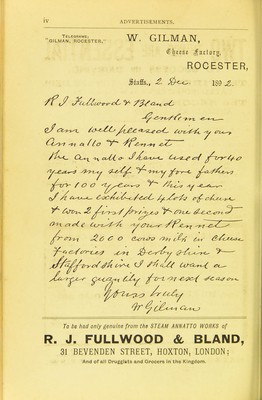 iv ADVERTISEMENTS.
TELEGRAMS:
"GILMAN, ROCESTER."
W. GILMAN,
Cheese Factory,
ROCESTER,
Staffs., 2 Dec 1892.
R J Fullwood & Bland
Gentlemen
I am well pleased with your
Annatto & Rennet
The Annatto I have used for 40
years my self & my fore fathers
for 100 years & this year
I have exhibited 4 lots of cheese
& won 2 first prizes & one second
made with your Rennet
from 2000 cows milk in cheese
Factories in Derbyshire &
Staffordshire I shall want a
larger quantity for next season
Yours truly
W Gilman
To be had only genuine from the STEAM ANNATTO WORKS of
R. J. FULLWOOD & BLAND,
31 BEVENDEN STREET, HOXTON, LONDON;
And of all Druggists and Grocers in the Kingdom.